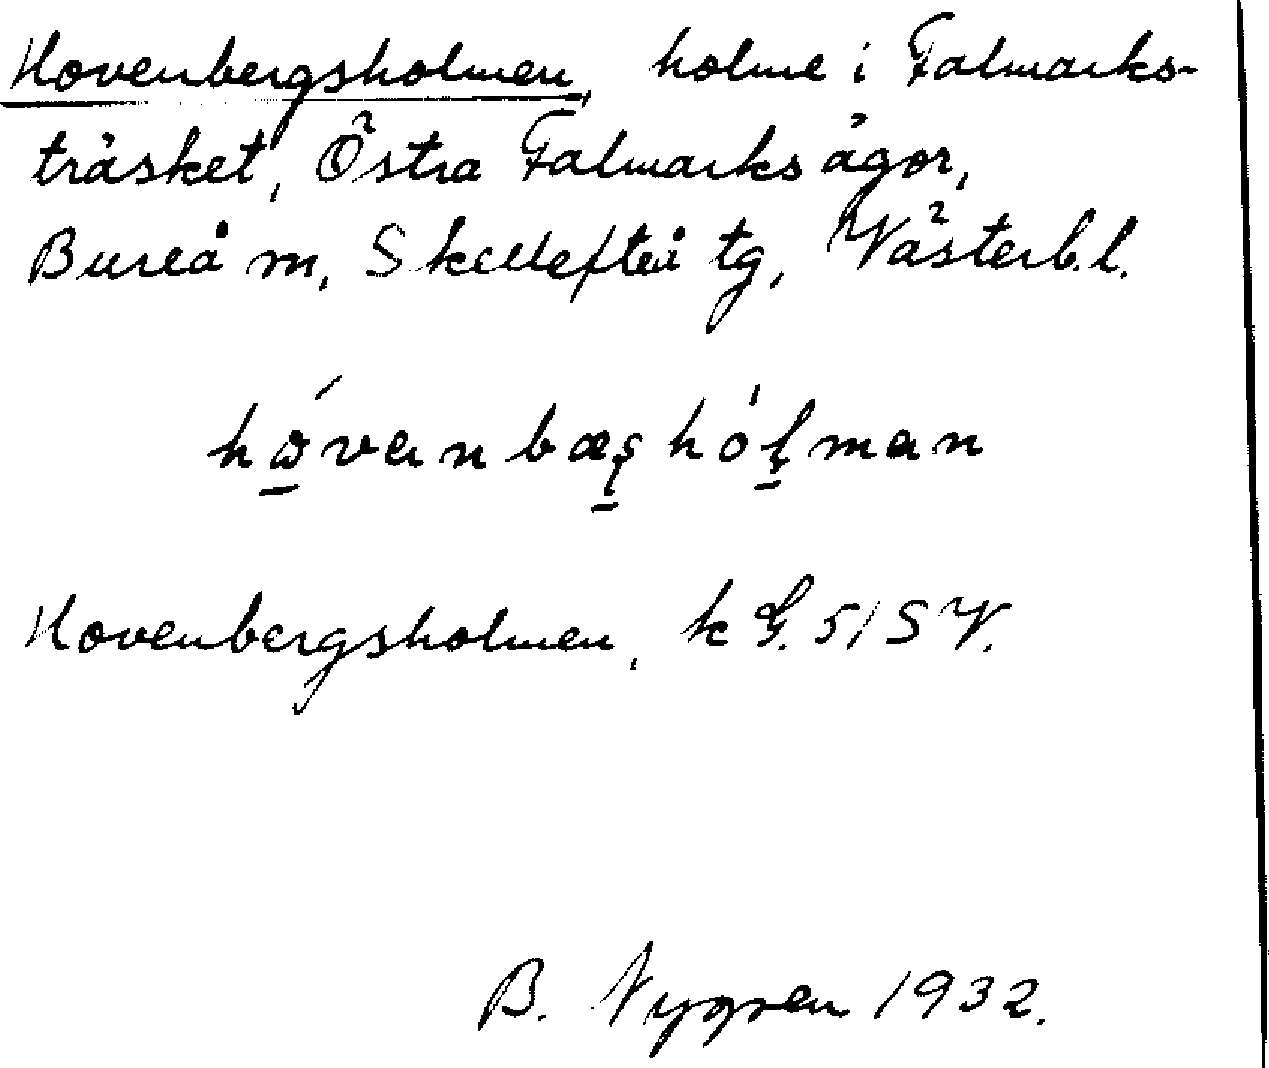 Hovenbergsholmen, holme i Falmarks-
träsket, Östra Falmarks ägor,
Bureå m, Skellefteå tg, Västerb.l.
hώ̱vanbæʂ̱hóḻman
Hovenbergsholmen, k G. 51 SV.
B. Nygren 1932.